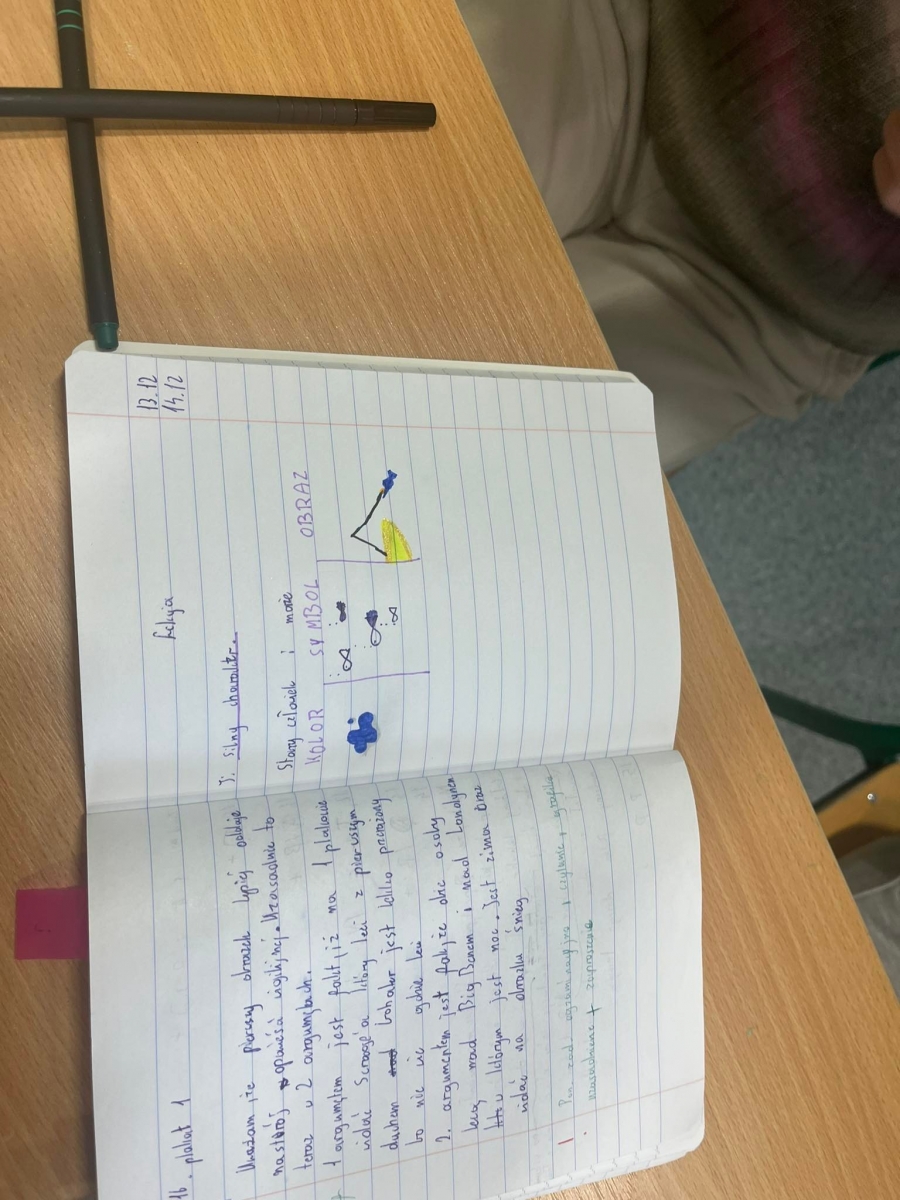 16. plakat 1
Uważam, że pierwszy obrazek lpiej oddaje
nastrój opowieśa wigilijnej. Uzasadnie to
teraz w 2 argumętach.
1 argumętem jest fakt, iż na 1 plakacie
widać Scrooge'a który leci z pierwszym
duchem bohater jest lekko przerażony
bo nie wie gdzie leci
2. argumentem jest fakt, że obie osoby
lecą nad Big Benem i nad Londynem
w którym jest noc. Jest zima oraz
widać na obrazku śnieg
uzasadnienie + zaproszenie
Lekcja
13.12
14.12
T: Silny charakter.
Stary człowiek i morze
KOLOR SYMBOL OBRAZ